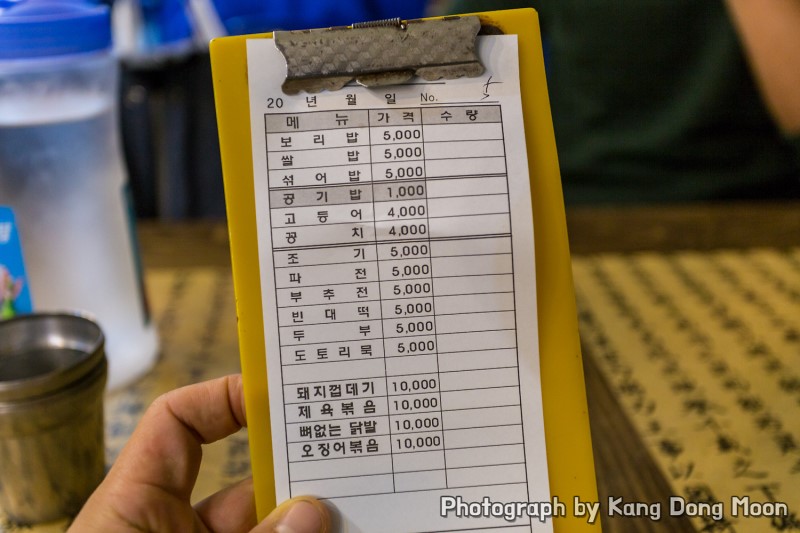 20 년 월 일 No.
메 뉴 가 격 수 량
보 리 밥 5,000
쌀 밥 5,000
섞 어 밥 5,000
공 기 밥 1,000
고 등 어 4,000
꽁 치 4,000
조 기 5,000
파 전 5,000
부 추 전 5,000
빈 대 떡 5,000
두 부 5,000
도 토 리 묵 5,000
돼지껍데기 10,000
제 육 볶 음 10,000
뼈없는 닭발 10,000
오 징 어 볶 음 10,000
Photograph by Kang Dong Moon